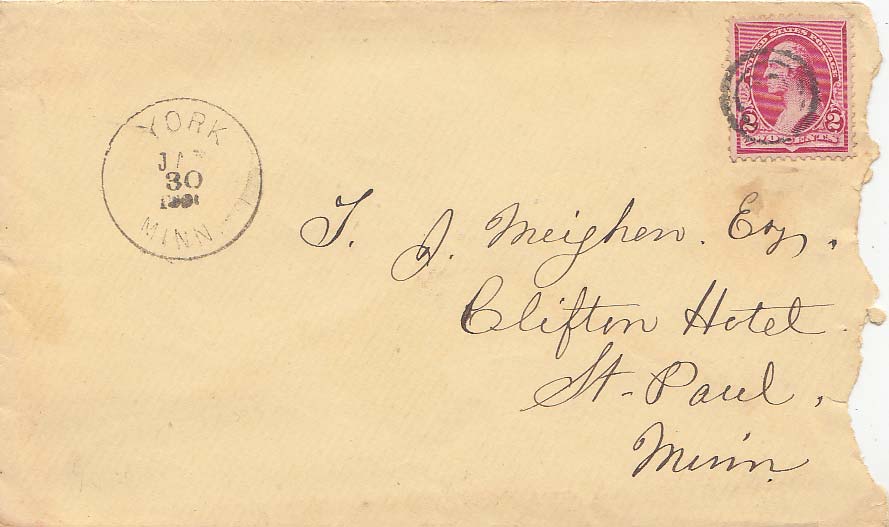 UNITED STATES POSTAGE
2 2
TWO CENTS
YORK
30
MINN.
T. J. Meighen. Esq.
Clifton Hotel
St. Paul,
Minn.